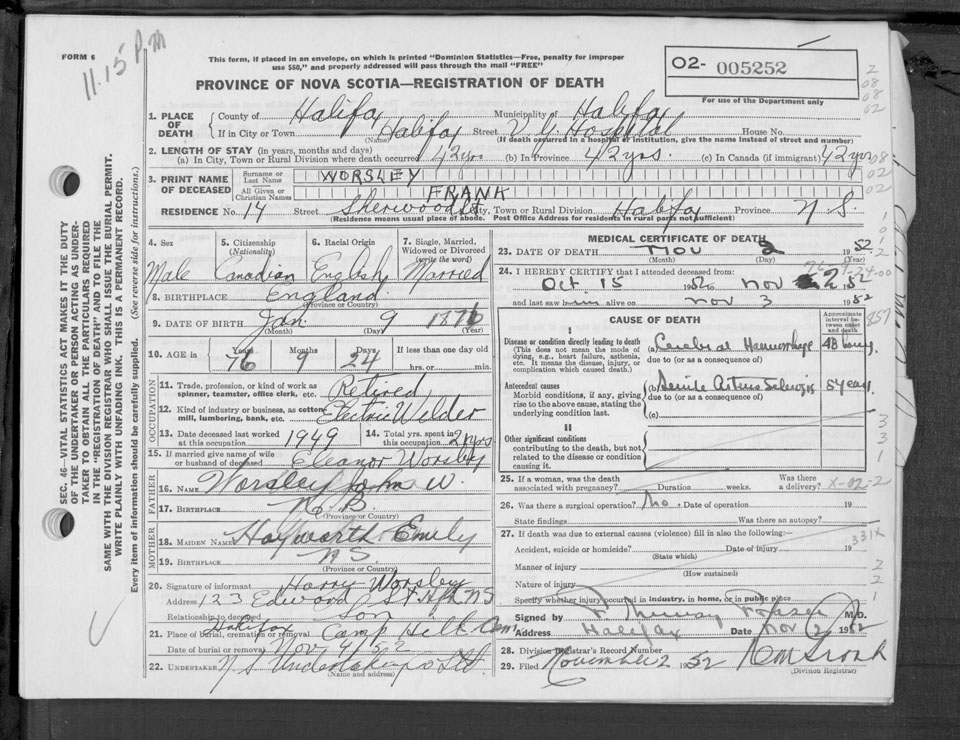 FORM 6
11.15 P.M
This form, if placed in an envelope, on which is printed "Dominion Statistics—Free, penalty for improper
use $50," and properly addressed will pass through the mail "FREE"
PROVINCE OF NOVA SCOTIA—REGISTRATION OF DEATH
O2- 005252
For use of the Department only
1. PLACE OF DEATH
County of Halifax Municipality of Halifax
If in City or Town Halifax Street V.G. Hospital House No.
(Name) (If death occurred in a hospital or institution, give the name instead of street and number)
2. LENGTH OF STAY (in years, months and days)
(a) In City, Town or Rural Division where death occurred 42 yrs. (b) In Province 42 yrs. (c) In Canada (if immigrant) 42 yrs
3. PRINT NAME OF DECEASED
Surname or Last Name WORSLEY
All Given or Christian Names FRANK
RESIDENCE No. 14 Street Sherwood St City, Town or Rural Division Halifax Province N S.
(Residence means usual place of abode. Post Office Address for residents in rural parts not sufficient)
4. Sex Male
5. Citizenship (Nationality) Canadian
6. Racial Origin English
7. Single, Married, Widowed or Divorced (write the word) Married
8. BIRTHPLACE England
(Province or Country)
9. DATE OF BIRTH Jan. 9 1876
(Month) (Day) (Year)
10. AGE in Years 76 Months 9 Days 24 If less than one day old
hrs. or min.
OCCUPATION
11. Trade, profession, or kind of work as spinner, teamster, office clerk, etc. Retired
12. Kind of industry or business, as cotton mill, lumbering, bank, etc. Electric Welder
13. Date deceased last worked at this occupation 1949
14. Total yrs. spent in this occupation 21 yrs
15. If married give name of wife or husband of deceased Eleanor Worsley
FATHER
16. NAME Worsley John W.
17. BIRTHPLACE N.B.
(Province or Country)
MOTHER
18. MAIDEN NAME Hayworth Emily
19. BIRTHPLACE N S
(Province or Country)
20. Signature of informant Harry Worsley
Address 123 Edward St. Hfx NS
Relationship to deceased son
21. Place of burial, cremation or removal Halifax Camp Hill Cem
Date of burial or removal Nov 4/52
22. UNDERTAKER N S Undertakers Ltd.
(Name and address)
MEDICAL CERTIFICATE OF DEATH
23. DATE OF DEATH Nov 1952
(Month) (Day) (Year)
24. I HEREBY CERTIFY that I attended deceased from:
Oct 15 1952 to Nov 2 1952
and last saw him alive on Nov 3 1952
CAUSE OF DEATH
Approximate interval between onset and death
I
Disease or condition directly leading to death (a) Cerebral Hemorrhage 48 hours
(This does not mean the mode of dying, e.g., heart failure, asthenia, etc. It means the disease, injury, or complication which caused death.)
due to (or as a consequence of)
Antecedent causes (b) Senile Arterio Sclerosis 5 years
Morbid conditions, if any, giving rise to the above cause, stating the underlying condition last.
due to (or as a consequence of)
(c)
II
Other significant conditions contributing to the death, but not related to the disease or condition causing it.
25. If a woman, was the death associated with pregnancy? Duration weeks. Was there a delivery? X-02-2
26. Was there a surgical operation? No. Date of operation 19
State findings Was there an autopsy?
27. If death was due to external causes (violence) fill in also the following:—
Accident, suicide or homicide? Date of injury 19 331X
(State which)
Manner of injury
(How sustained)
Nature of injury
Specify whether injury occurred in industry, in home, or in public place
Signed by M.D.
Address Halifax Date Nov 2 1952
28. Division Registrar's Record Number
29. Filed November 2 1952
(Division Registrar)
SEC. 46—VITAL STATISTICS ACT MAKES IT THE DUTY
OF THE UNDERTAKER OR PERSON ACTING AS UNDER-
TAKER TO OBTAIN ALL THE PARTICULARS REQUIRED
IN THE "REGISTRATION OF DEATH" AND TO FILE THE
SAME WITH THE DIVISION REGISTRAR WHO SHALL ISSUE THE BURIAL PERMIT.
WRITE PLAINLY WITH UNFADING INK. THIS IS A PERMANENT RECORD.
Every item of information should be carefully supplied. (See reverse side for instructions.)